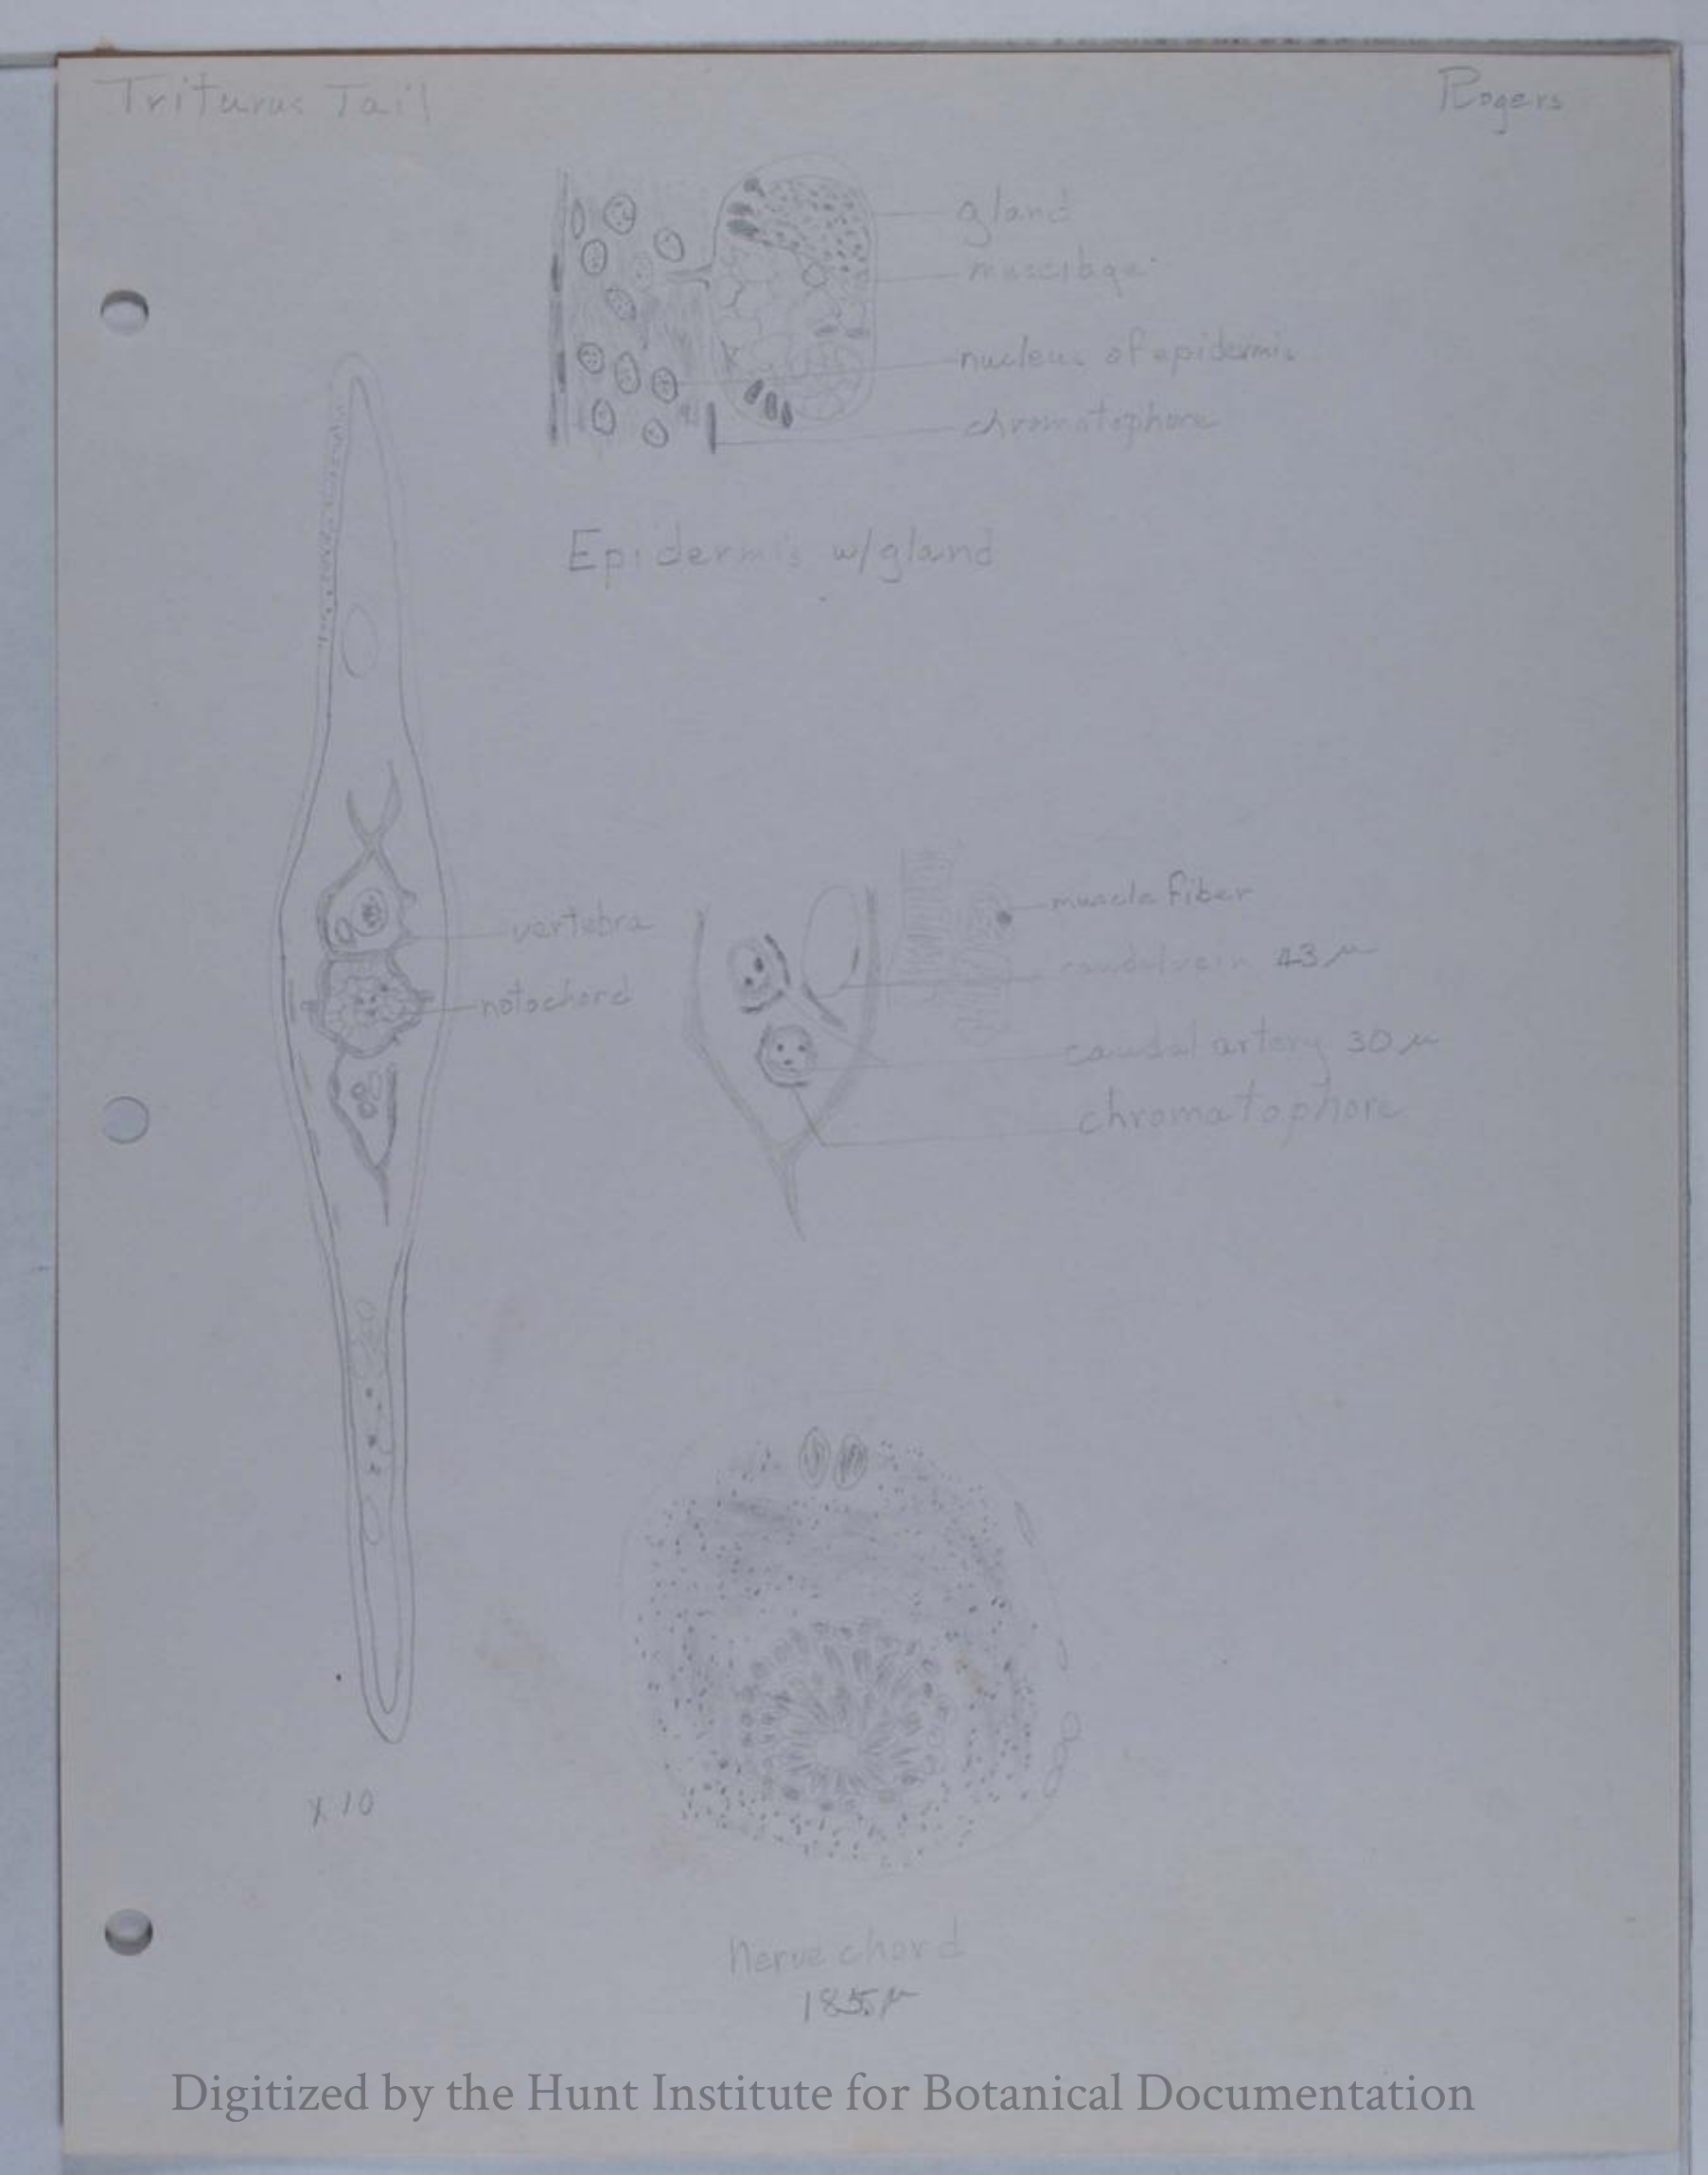 Triturus Tail
Rogers
gland
muscilage
nucleus of epidermis
chromatophore
Epidermis w/gland
vertebra
notochord
muscle fiber
caudal vein 43 µ
caudal artery 30 µ
chromatophore
x 10
Nerve chord
185 µ
Digitized by the Hunt Institute for Botanical Documentation